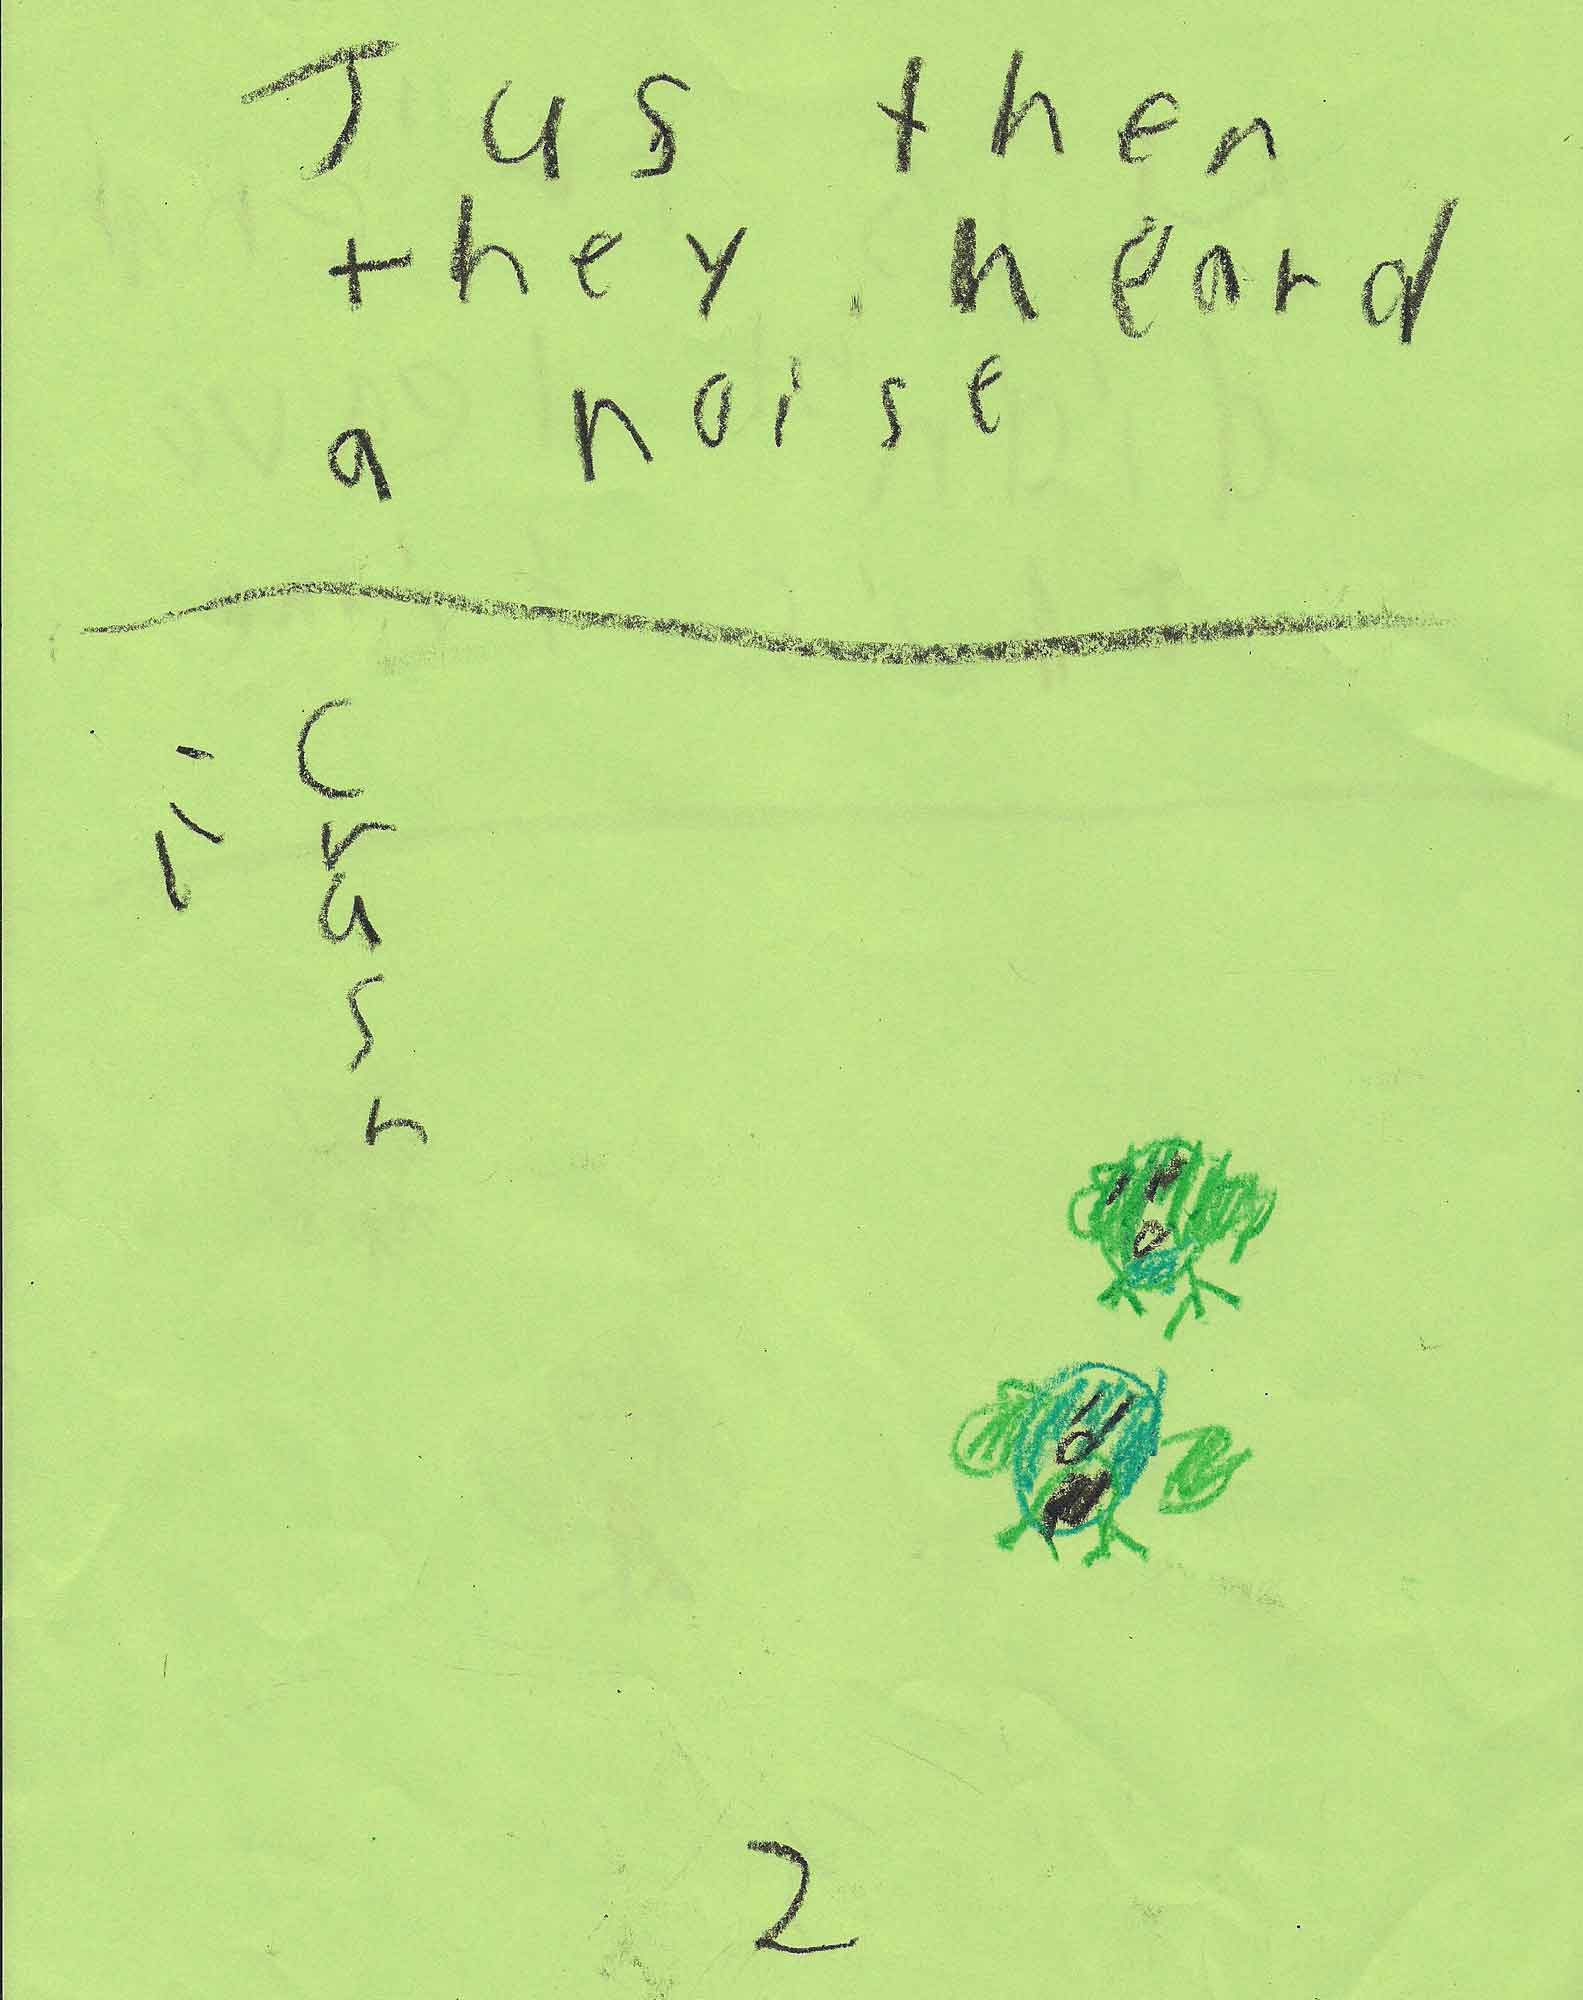 Jus then
they heard
a noise
Crash
2